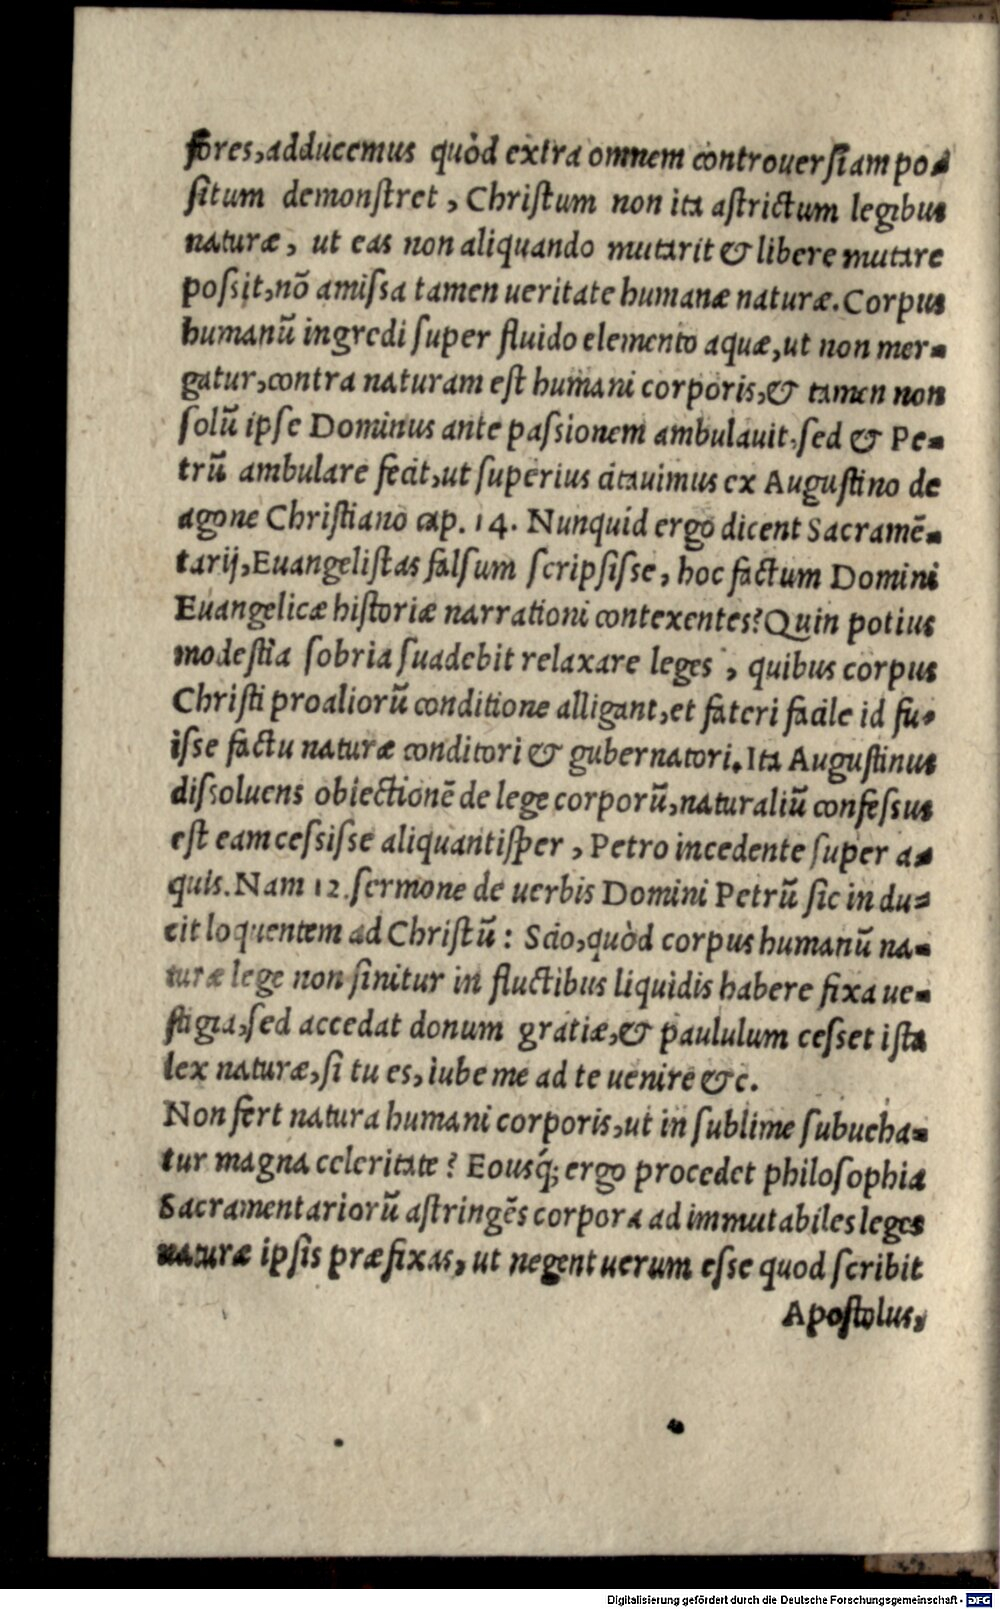 ſores, adducemus quòd extra omnem controuerſiam po-
ſitum demonſtret, Chriſtum non ita aſtrictum legibus
naturæ, ut eas non aliquando mutarit & libere mutare
poſsit, nō amiſsa tamen ueritate humanæ naturæ. Corpus
humanū ingredi ſuper fluido elemento aquæ, ut non mer-
gatur, contra naturam eſt humani corporis, & tamen non
ſolū ipſe Dominus ante paſsionem ambulauit, ſed & Pe-
trū ambulare fecit, ut ſuperius citauimus ex Auguſtino de
agone Chriſtiano cap. 14. Nunquid ergo dicent Sacramē-
tarij, Euangeliſtas falſum ſcripſiſse, hoc factum Domini
Euangelicæ hiſtoriæ narrationi contexentes? Quin potius
modeſtia ſobria ſuadebit relaxare leges, quibus corpus
Chriſti pro aliorū conditione alligant, et fateri facile id fu-
iſse factu naturæ conditori & gubernatori. Ita Auguſtinus
diſsoluens obiectionē de lege corporū, naturaliū confeſsus
eſt eam ceſsiſse aliquantiſper, Petro incedente ſuper a-
quis. Nam 12. ſermone de uerbis Domini Petrū ſic in du-
cit loquentem ad Chriſtū: Scio, quòd corpus humanū na-
turæ lege non ſinitur in fluctibus liquidis habere fixa ue-
ſtigia, ſed accedat donum gratiæ, & paululum ceſset iſta
lex naturæ, ſi tu es, iube me ad te uenire &c.
Non fert natura humani corporis, ut in ſublime ſubueha-
tur magna celeritate? Eousq́; ergo procedet philoſophia
Sacramentariorū aſtringēs corpora ad immutabiles leges
naturæ ipſis præfixas, ut negent uerum eſse quod ſcribit
Apoſtolus,
Digitalisierung gefördert durch die Deutsche Forschungsgemeinschaft - DFG